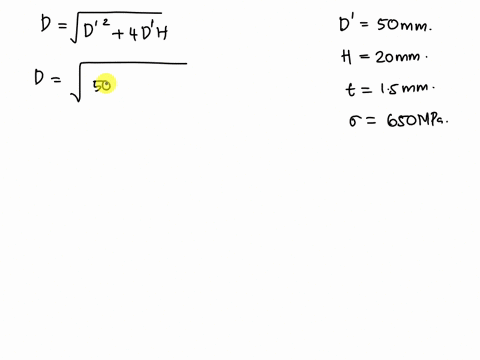 D = √(D'² + 4D'H)
D = √(50
D' = 50mm.
H = 20mm.
t = 1.5mm.
σ = 650MPa.